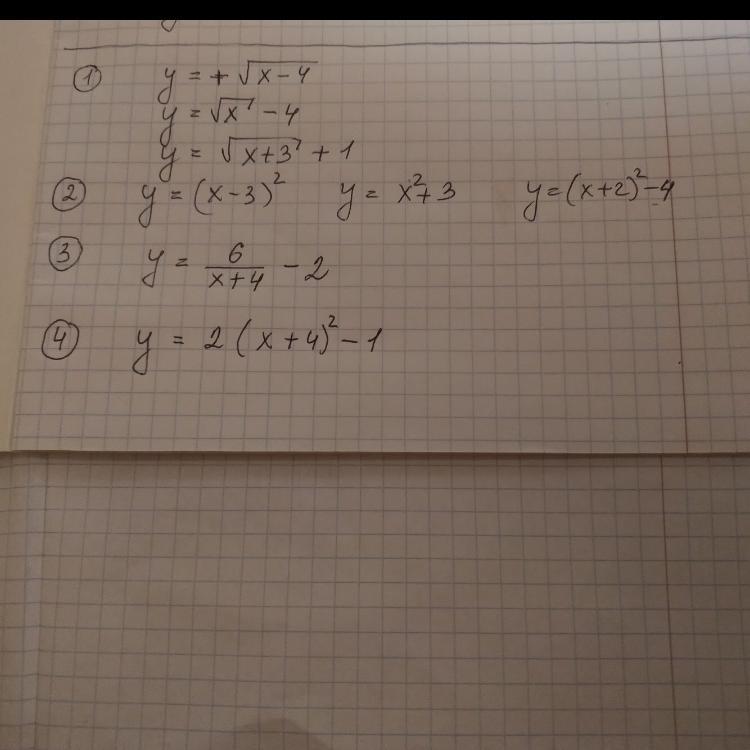 ① y = + √(x-4)
y = √x - 4
y = √(x+3) + 1
② y = (x-3)² y = x²+3 y=(x+2)²-4
③ y = 6/(x+4) - 2
④ y = 2(x+4)²-1